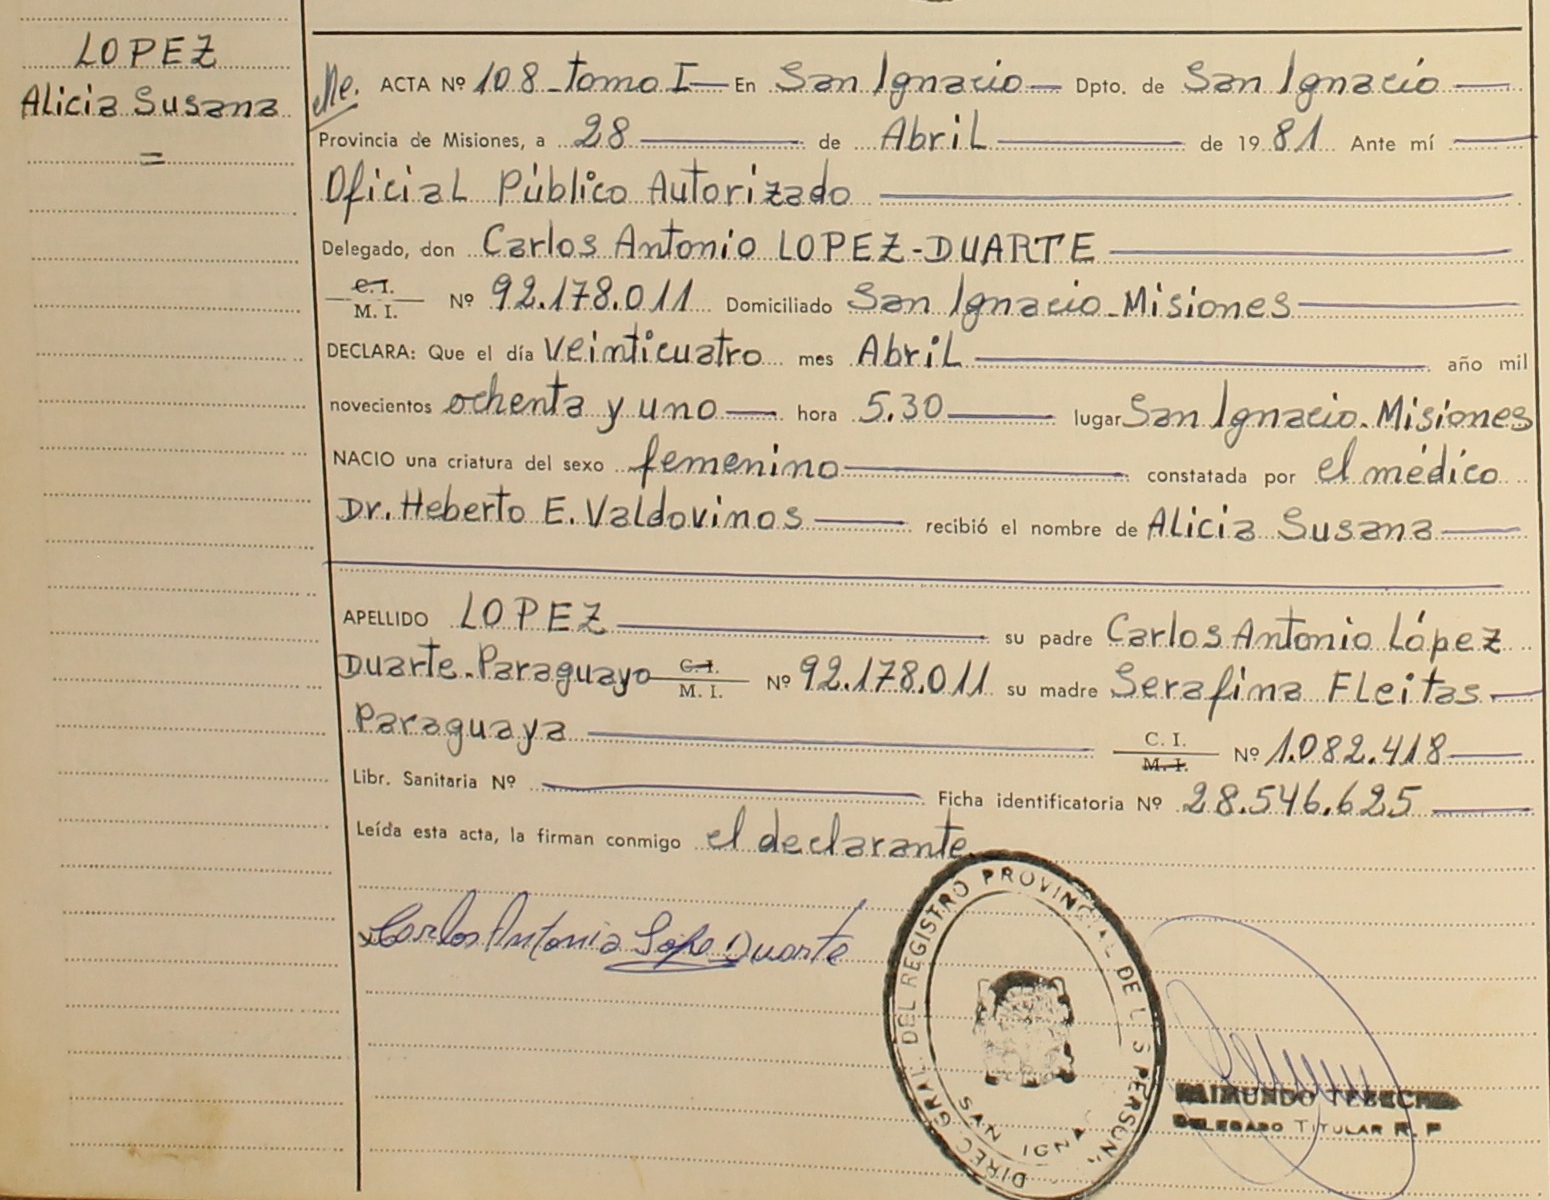 LOPEZ
Alicia Susana
=
Ne. ACTA Nº 108 - tomo I — En San Ignacio — Dpto. de San Ignacio —
Provincia de Misiones, a 28 — de Abril — de 1981 Ante mí —
Oficial Público Autorizado —
Delegado, don Carlos Antonio LOPEZ-DUARTE —
C.I. / M. I. Nº 92.178.011 Domiciliado San Ignacio - Misiones —
DECLARA: Que el día veinticuatro mes Abril — año mil
novecientos ochenta y uno — hora 5.30 — lugar San Ignacio. Misiones
NACIO una criatura del sexo femenino — constatada por el médico
Dr. Heberto E. Valdovinos — recibió el nombre de Alicia Susana —
APELLIDO LOPEZ — su padre Carlos Antonio López
Duarte. Paraguayo — C.I. / M. I. Nº 92.178.011 su madre Serafina Fleitas —
Paraguaya — C. I. / M. I. Nº 1.082.418 —
Libr. Sanitaria Nº — Ficha identificatoria Nº 28.546.625 —
Leída esta acta, la firman conmigo el declarante
Carlos Antonio Lope Duarte
DIREC. GRAL. DEL REGISTRO PROVINCIAL DE L S PERSON
SAN IGNA
RAIMUNDO
DELEGADO TITULAR R. P